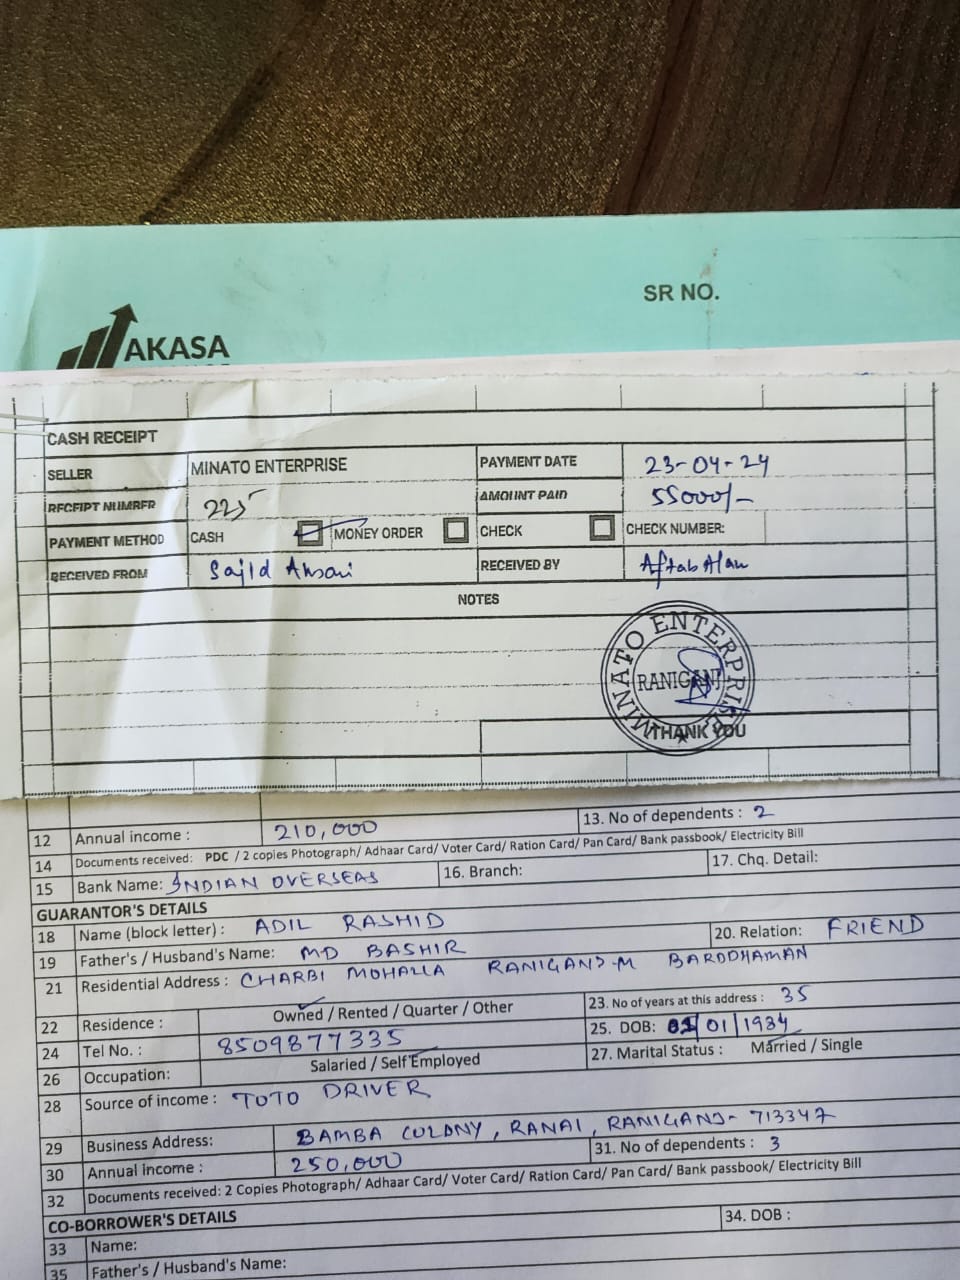 SR NO.
AKASA
CASH RECEIPT
SELLER MINATO ENTERPRISE PAYMENT DATE 23-04-24
RECEIPT NUMBER 225 AMOUNT PAID 55000/-
PAYMENT METHOD CASH MONEY ORDER CHECK CHECK NUMBER:
RECEIVED FROM Sajid Ansari RECEIVED BY Aftab Alam
NOTES
MINATO ENTERPRISE
RANIGANJ
THANK YOU
12 Annual income : 210,000 13. No of dependents : 2
14 Documents received: PDC / 2 copies Photograph/ Adhaar Card/ Voter Card/ Ration Card/ Pan Card/ Bank passbook/ Electricity Bill
15 Bank Name: INDIAN OVERSEAS 16. Branch: 17. Chq. Detail:
GUARANTOR'S DETAILS
18 Name (block letter) : ADIL RASHID
19 Father's / Husband's Name: MD BASHIR 20. Relation: FRIEND
21 Residential Address : CHARBI MOHALLA RANIGANJ-M BARDDHAMAN
22 Residence : Owned / Rented / Quarter / Other 23. No of years at this address : 35
24 Tel No. : 8509877335 25. DOB: 01/01/1984
26 Occupation: Salaried / Self Employed 27. Marital Status : Married / Single
28 Source of income : TOTO DRIVER
29 Business Address: BAMBA COLONY, RANAI, RANIGANJ- 713347
30 Annual income : 250,000 31. No of dependents : 3
32 Documents received: 2 Copies Photograph/ Adhaar Card/ Voter Card/ Ration Card/ Pan Card/ Bank passbook/ Electricity Bill
CO-BORROWER'S DETAILS
33 Name: 34. DOB :
35 Father's / Husband's Name: